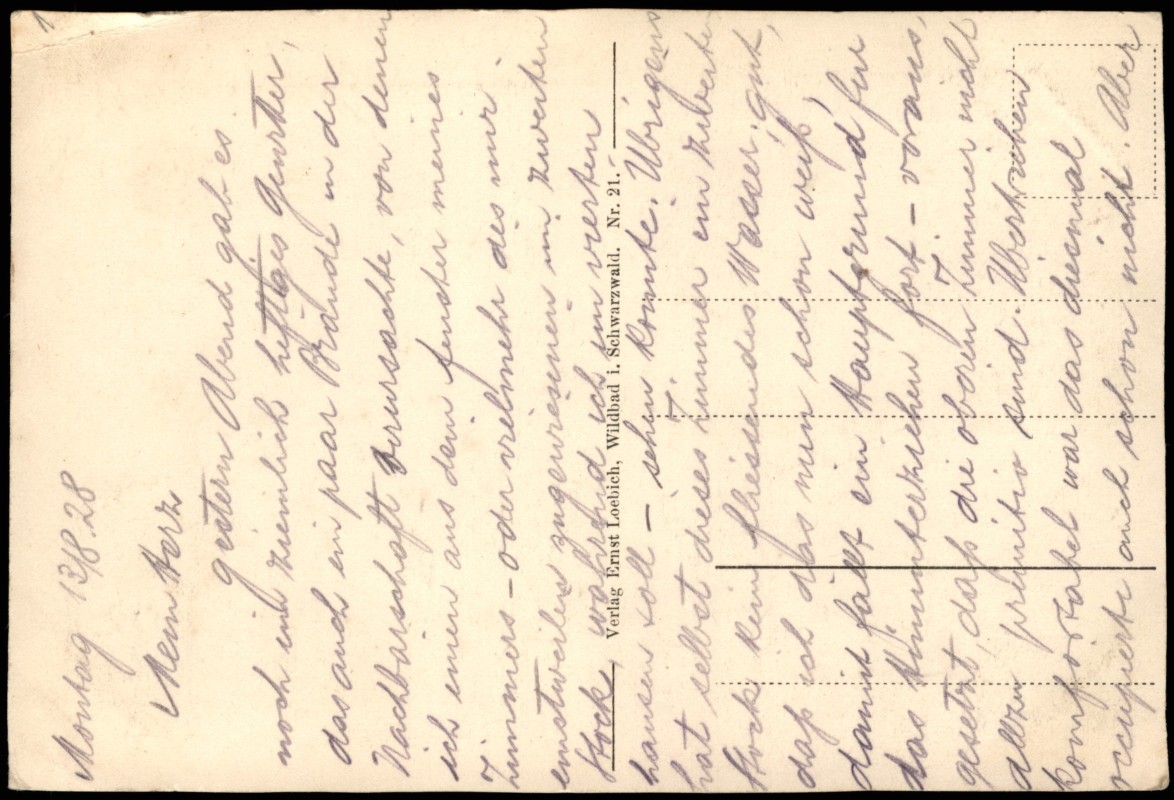 1
Montag 13/8.28
Mein Herz
gestern Abend gab es
noch ein ziemlich heftiges Gewitter,
das auch ein paar Brände in der
Nachbarschaft verursachte, von denen
ich einen aus dem Fenster meines
Zimmers – oder vielmehr des mir
einstweilen zugewiesenen im zweiten
Stock, während ich im vierten
hausen soll – sehen konnte. Übrigens
hat selbst dieses Zimmer im
Stock kein fliessendes Wasser, gut,
daß ich das nun schon weiß,
damit fällt ein Hauptgrund für
das Hinunterziehen fort – voraus-
gesetzt, daß die oberen Zimmer nicht
allzu primitiv sind.
komfortabel war das diesmal
occupierte auch schon nicht. Aber
Verlag Ernst Loebich, Wildbad i. Schwarzwald. Nr. 21.